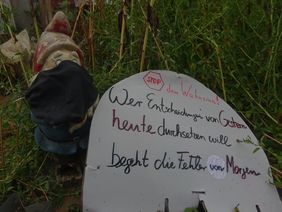 STOP
dem Wahnsinn!
Wer Entscheidungen von Gestern
heute durchsetzen will
begeht die Fehler von Morgen